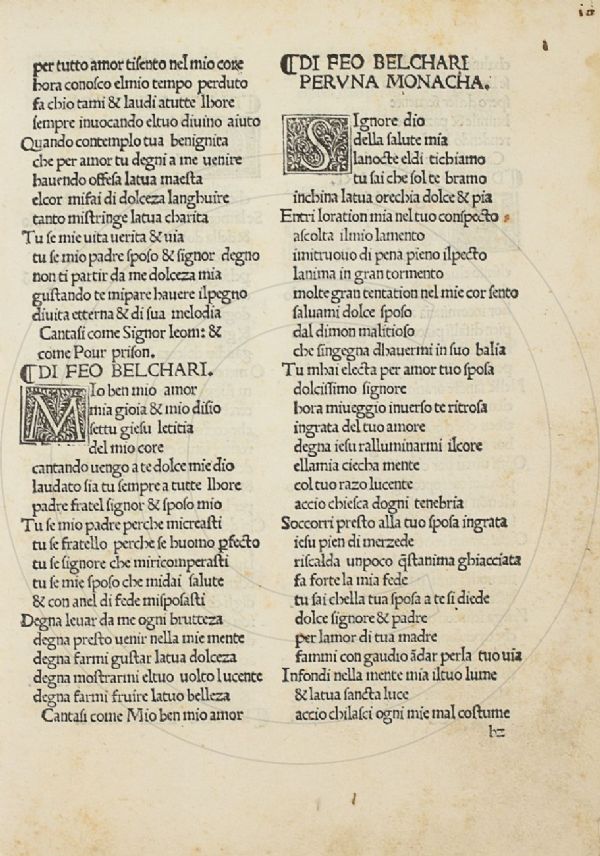 per tutto amor tisento nel mio core
hora conosco elmio tempo perduto
fa chio tami & laudi atutte lhore
sempre inuocando eltuo diuino aiuto
Quando contemplo tua benignita
che per amor tu degni a me uenire
hauendo offesa latua maesta
elcor mifai di dolceza languire
tanto mistringe latua charita
Tu se mie uita uerita & uia
tu se mio padre sposo & signor degno
non ti partir da me dolceza mia
gustando te mipare hauere ilpegno
diuita etterna & di sua melodia
Cantasi come Signor leom: &
come Pour prison.
⁋DI FEO BELCHARI.
MIo ben mio amor
mia gioia & mio disio
settu giesu letitia
del mio core
cantando uengo a te dolce mie dio
laudato sia tu sempre a tutte lhore
padre fratel signor & sposo mio
Tu se mio padre perche micreasti
tu se fratello perche se huomo ꝑfecto
tu se signore che miricomperasti
tu se mie sposo che midai salute
& con anel di fede misposasti
Degna leuar da me ogni brutteza
degna presto uenir nella mie mente
degna farmi gustar latua dolceza
degna mostrarmi eltuo uolto lucente
degna farmi fruire latuo belleza
Cantasi come Mio ben mio amor
⁋DI FEO BELCHARI
PERVNA MONACHA.
SIgnore dio
della salute mia
lanocte eldi tichiamo
tu sai che sol te bramo
inchina latua orechia dolce & pia
Entri loration mia nel tuo conspecto
ascolta ilmio lamento
imitruouo di pena pieno ilpecto
lanima in gran tormento
molte gran tentation nel mie cor sento
saluami dolce sposo
dal dimon malitioso
che singegna dhauermi in suo balia
Tu mhai electa per amor tuo sposa
dolcissimo signore
hora miueggio inuerso te ritrosa
ingrata del tuo amore
degna iesu ralluminarmi ilcore
ellamia ciecha mente
col tuo razo lucente
accio chiesca dogni tenebria
Soccorri presto alla tuo sposa ingrata
iesu pien di merzede
riscalda unpoco q̃stanima ghiacciata
fa forte la mia fede
tu sai chella tua sposa a te si diede
dolce signore & padre
per lamor di tua madre
fammi con gaudio ãdar perla tuo uia
Infondi nella mente mia iltuo lume
& latua sancta luce
accio chilasci ogni mie mal costume